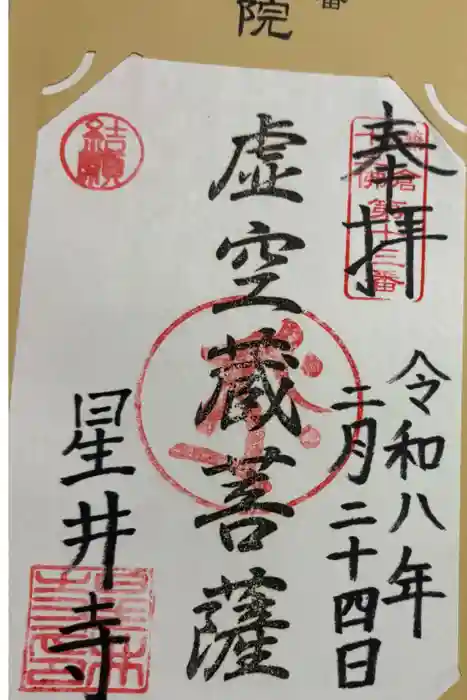 番
院
奉拝
鎌倉十三佛第十三番
令和八年
二月二十四日
虚空蔵菩薩
結願
星井寺